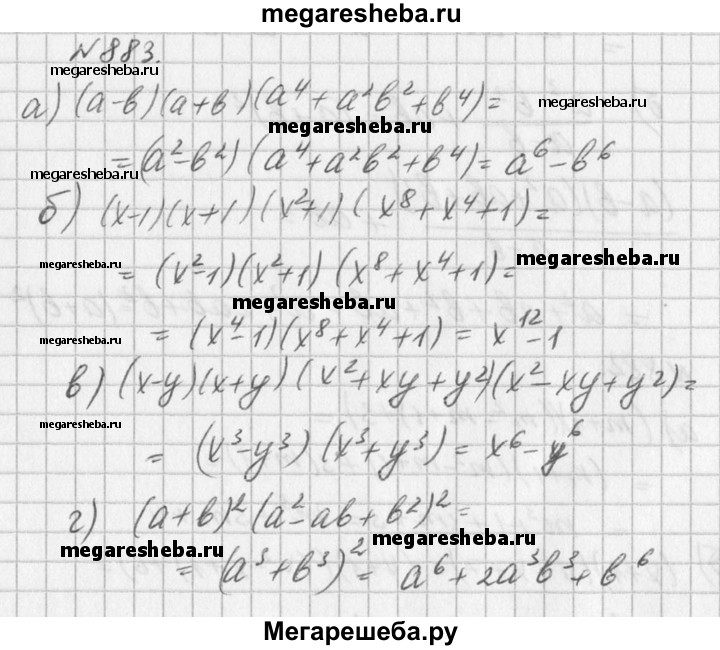 megaresheba.ru
N883.
megaresheba.ru
а) (a-b)(a+b)(a⁴+a²b²+b⁴)=
megaresheba.ru
megaresheba.ru
=(a²-b²)(a⁴+a²b²+b⁴)=a⁶-b⁶
megaresheba.ru
б) (x-1)(x+1)(x²+1)(x⁸+x⁴+1)=
megaresheba.ru
megaresheba.ru
=(x²-1)(x²+1)(x⁸+x⁴+1)=
megaresheba.ru
=(x⁴-1)(x⁸+x⁴+1)=x¹²-1
megaresheba.ru
в) (x-y)(x+y)(x²+xy+y²)(x²-xy+y²)=
megaresheba.ru
=(x³-y³)(x³+y³)=x⁶-y⁶
г) (a+b)²(a²-ab+b²)²=
megaresheba.ru
megaresheba.ru
=(a³+b³)²=a⁶+2a³b³+b⁶
Мегарешеба.ру